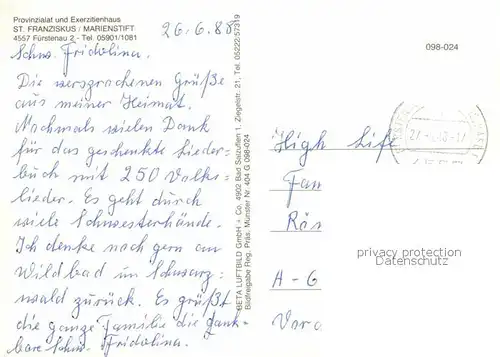 Provinzialat und Exerzitienhaus
ST. FRANZISKUS / MARIENSTIFT
4557 Fürstenau 2 - Tel. 05901/1081
26.6.88
Schw. Fridolina.
Die versprochenen Grüße
aus meiner Heimat.
Nochmals vielen Dank
für das geschenkte Lieder-
buch mit 250 Volks-
lieder. Es geht durch
viele Schwesterhände.
Ich denke noch gern an
Wildbad im Schwarz-
wald zurück. Es grüßt
die ganze Familie die dank-
bare Schw. Fridolina.
BETA LUFTBILD GmbH + Co, 4902 Bad Salzuflen 1, Ziegelstr. 21, Tel. 05222/57319
Bildfreigabe Reg. Präs. Münster Nr. 404 G 098-024
098-024
High Life
Fam
Rös
A-6
privacy protection
Datenschutz